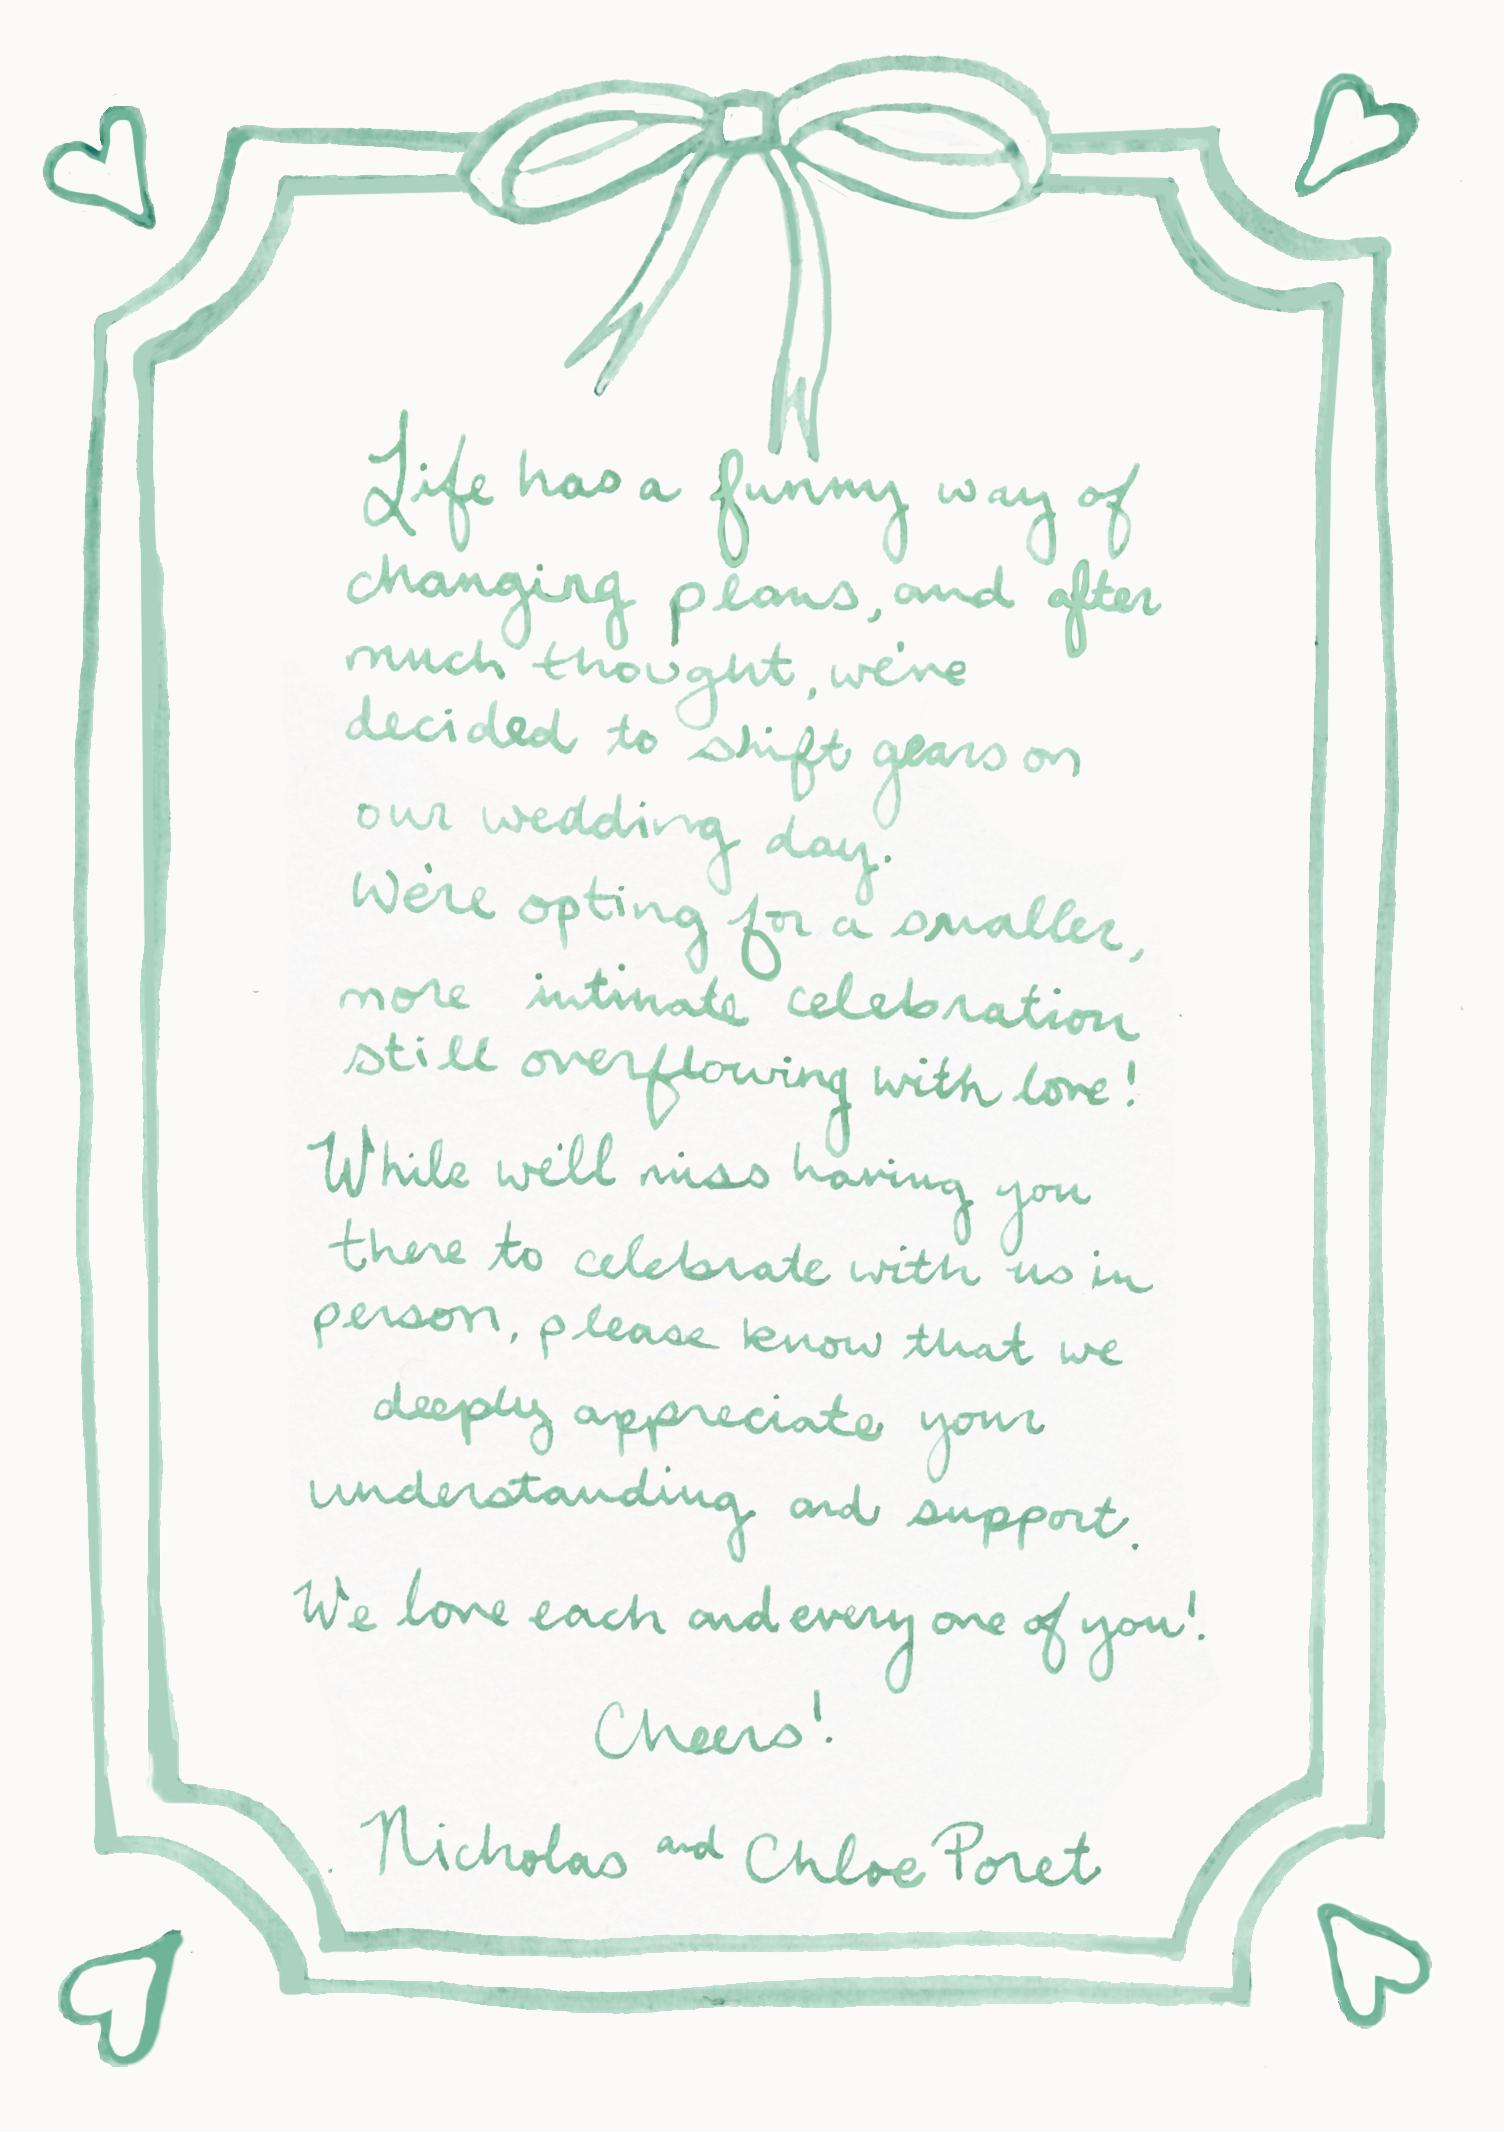 Life has a funny way of
changing plans, and after
much thought, we've
decided to shift gears on
our wedding day.
We're opting for a smaller,
more intimate celebration
still overflowing with love!
While we'll miss having you
there to celebrate with us in
person, please know that we
deeply appreciate your
understanding and support.
We love each and every one of you!
Cheers!
Nicholas and Chloe Poret